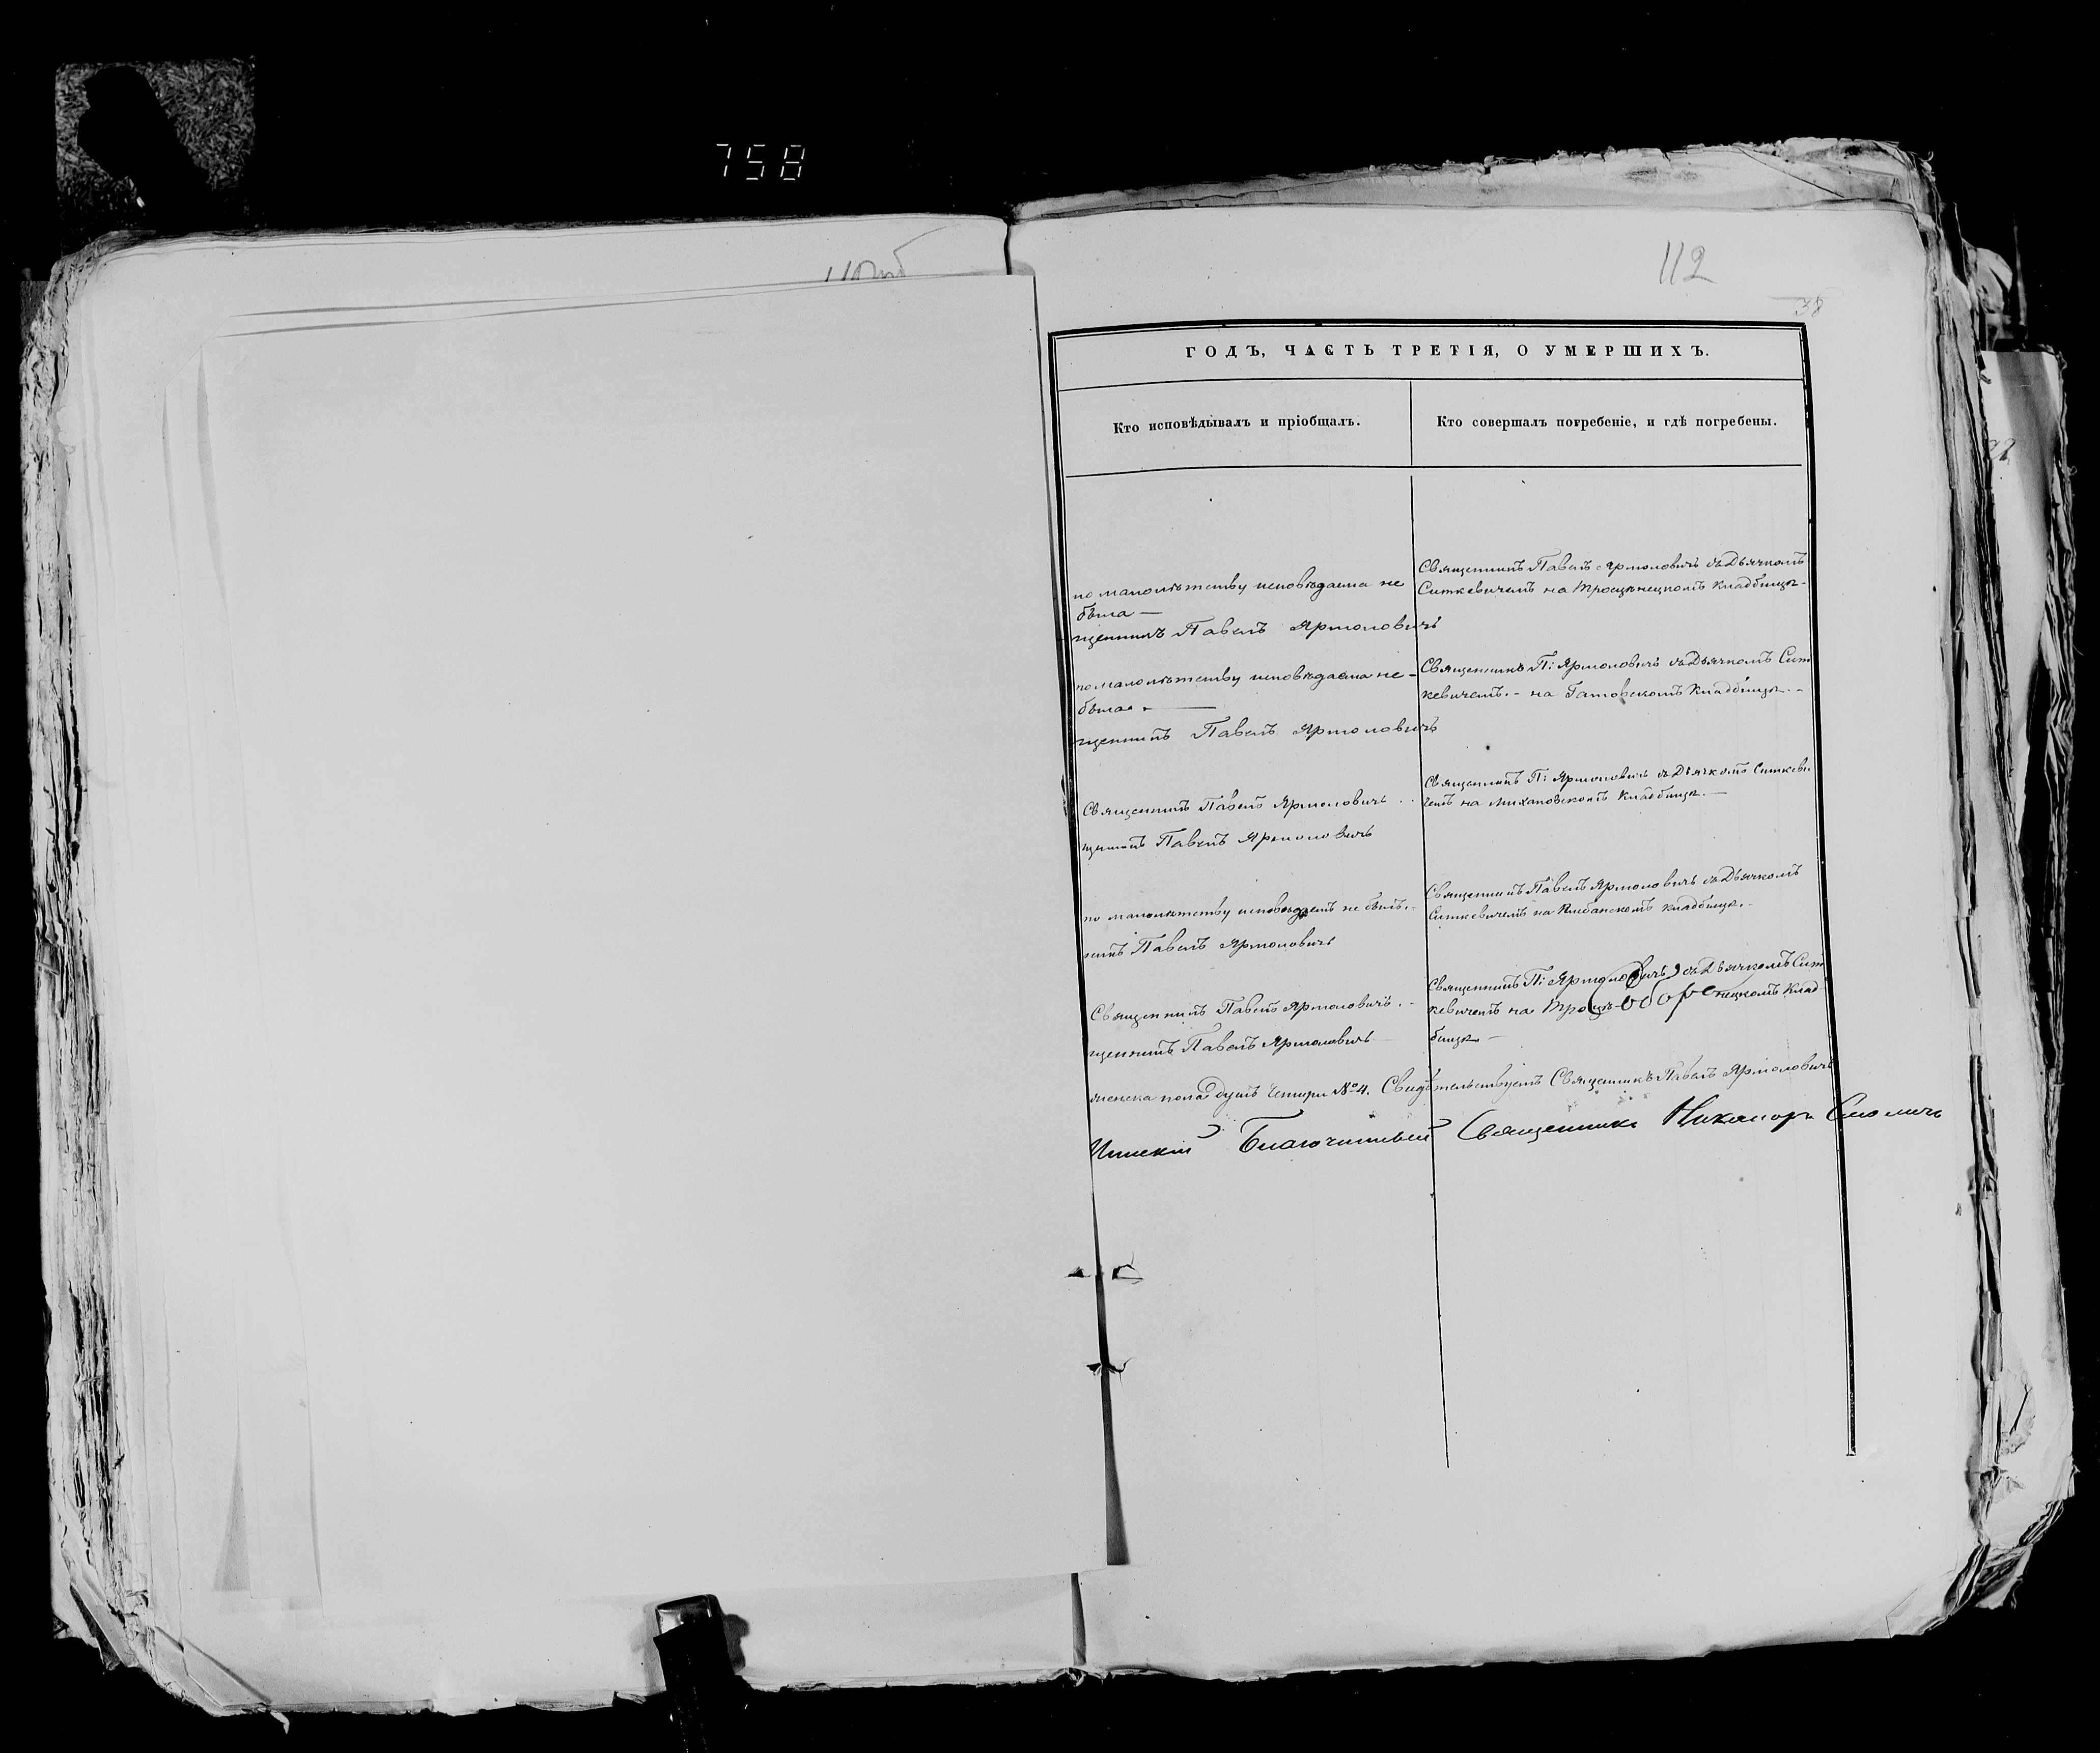 758
112
38
ГОДЪ, ЧАСТЬ ТРЕТІЯ, О УМЕРШИХЪ.
Кто исповѣдывалъ и пріобщалъ.
Кто совершалъ погребеніе, и гдѣ погребены.
по малолѣтству исповѣдаема не
была —
щенникъ Павелъ Ярмоловичъ
Священникъ Павелъ Ярмоловичъ съ Дьячкомъ
Ситкевичемъ на Тросцянецкомъ кладбищѣ.
по малолѣтству исповѣдаема не
была. —
щенникъ Павелъ Ярмоловичъ
Священникъ П: Ярмоловичъ съ Дьячкомъ Сит
кевичемъ. – на Гатовскомъ Кладбищѣ. –
Священникъ Павелъ Ярмоловичъ.
щенникъ Павелъ Ярмоловичъ
Священникъ П: Ярмоловичъ съ Дьячкомъ Ситкеви
чемъ на Михановскомъ Кладбищѣ. —
по малолѣтству исповѣдаемъ не былъ.
никъ Павелъ Ярмоловичъ
Священникъ Павелъ Ярмоловичъ съ Дьячкомъ
Ситкевичемъ на кладбищѣ. –
Священникъ Павелъ Ярмоловичъ. –
щенникъ Павелъ Ярмоловичъ
Священникъ П: Ярмоловичъ съ Дьячкомъ Сит
кевичемъ на нецкомъ Клад
бищѣ —
женска пола душъ четыри №4. Свидѣтельствуетъ Священникъ Павелъ Ярмоловичъ
Благочинный Священникъ Никаноръ Смоличъ